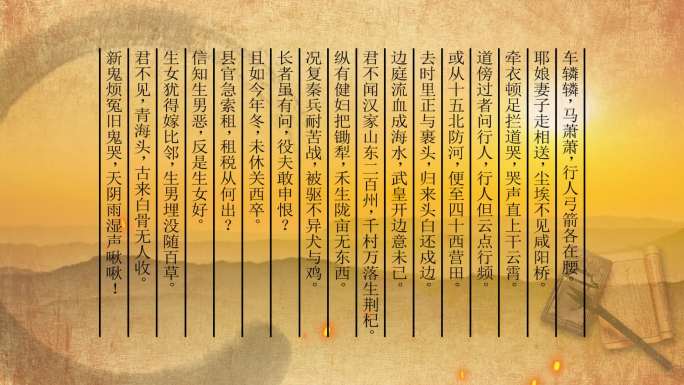 车辚辚，马萧萧，行人弓箭各在腰。
耶娘妻子走相送，尘埃不见咸阳桥。
牵衣顿足拦道哭，哭声直上干云霄。
道傍过者问行人，行人但云点行频。
或从十五北防河，便至四十西营田。
去时里正与裹头，归来头白还戍边。
边庭流血成海水，武皇开边意未已。
君不闻汉家山东二百州，千村万落生荆杞。
纵有健妇把锄犁，禾生陇亩无东西。
况复秦兵耐苦战，被驱不异犬与鸡。
长者虽有问，役夫敢申恨？
且如今年冬，未休关西卒。
县官急索租，租税从何出？
信知生男恶，反是生女好。
生女犹得嫁比邻，生男埋没随百草。
君不见，青海头，古来白骨无人收。
新鬼烦冤旧鬼哭，天阴雨湿声啾啾！